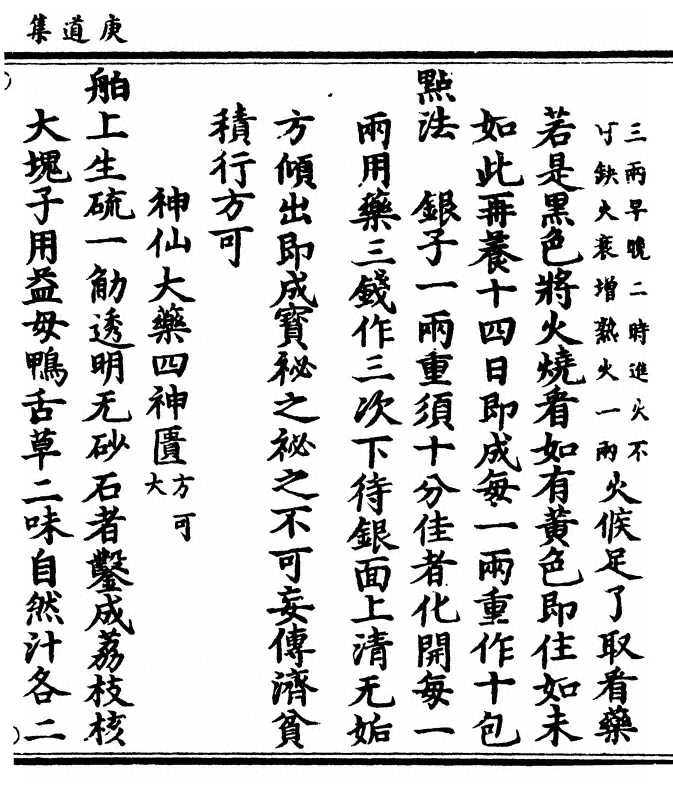 庚道集
三兩早晚二時進火不
可缺火衰增熟火一兩
火候足了取看藥
若是黑色將火燒看如有黃色即住如未
如此再養十四日即成每一兩重作十包
點法　銀子一兩重須十分佳者化開每一
兩用藥三錢作三次下待銀面上清无姤
方傾出即成寳秘之秘之不可妄傳濟貧
積行方可
神仙大藥四神匱
方可
大
舶上生硫一觔透明无砂石者鑿成荔枝核
大塊子用益母鴨舌草二味自然汁各二